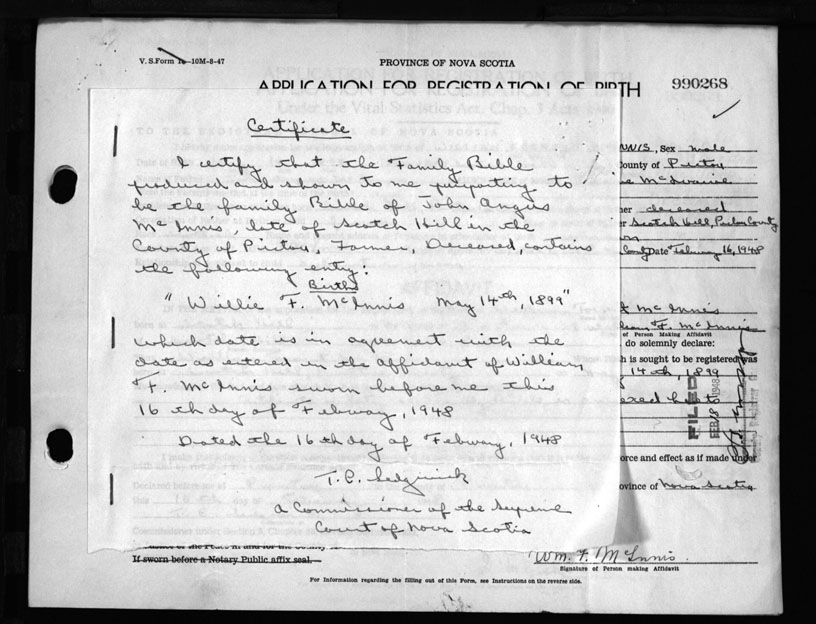 V. S. Form 10-10M-8-47
PROVINCE OF NOVA SCOTIA
APPLICATION FOR REGISTRATION OF BIRTH
990268
Certificate
I certify that the Family Bible
produced and shown to me purporting to
be the family Bible of John Angus
McInnis, late of Scotch Hill in the
County of Pictou, Farmer, Deceased, contains
the following entry:
Births
"Willie F. McInnis May 14th, 1899"
which date is in agreement with the
date as entered in the affidavit of William
F. McInnis sworn before me this
16 th day of February, 1948
Dated the 16 th day of February, 1948
T. C. Sedgwick
A Commissioner of the Supreme
Court of Nova Scotia
NNIS, Sex male
County of Pictou
McIvaine
deceased
Scotch Hill, Pictou County
Date February 16, 1948
McInnis
William F. McInnis
of Person Making Affidavit
do solemnly declare:
h is sought to be registered was
14th, 1899
FILED
FEB 18 1948
orce and effect as if made under
ovince of Nova Scotia
If sworn before a Notary Public affix seal.
Wm. F. McInnis
Signature of Person making Affidavit
For Information regarding the filling out of this Form, see Instructions on the reverse side.